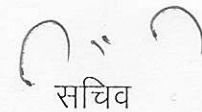 सचिव